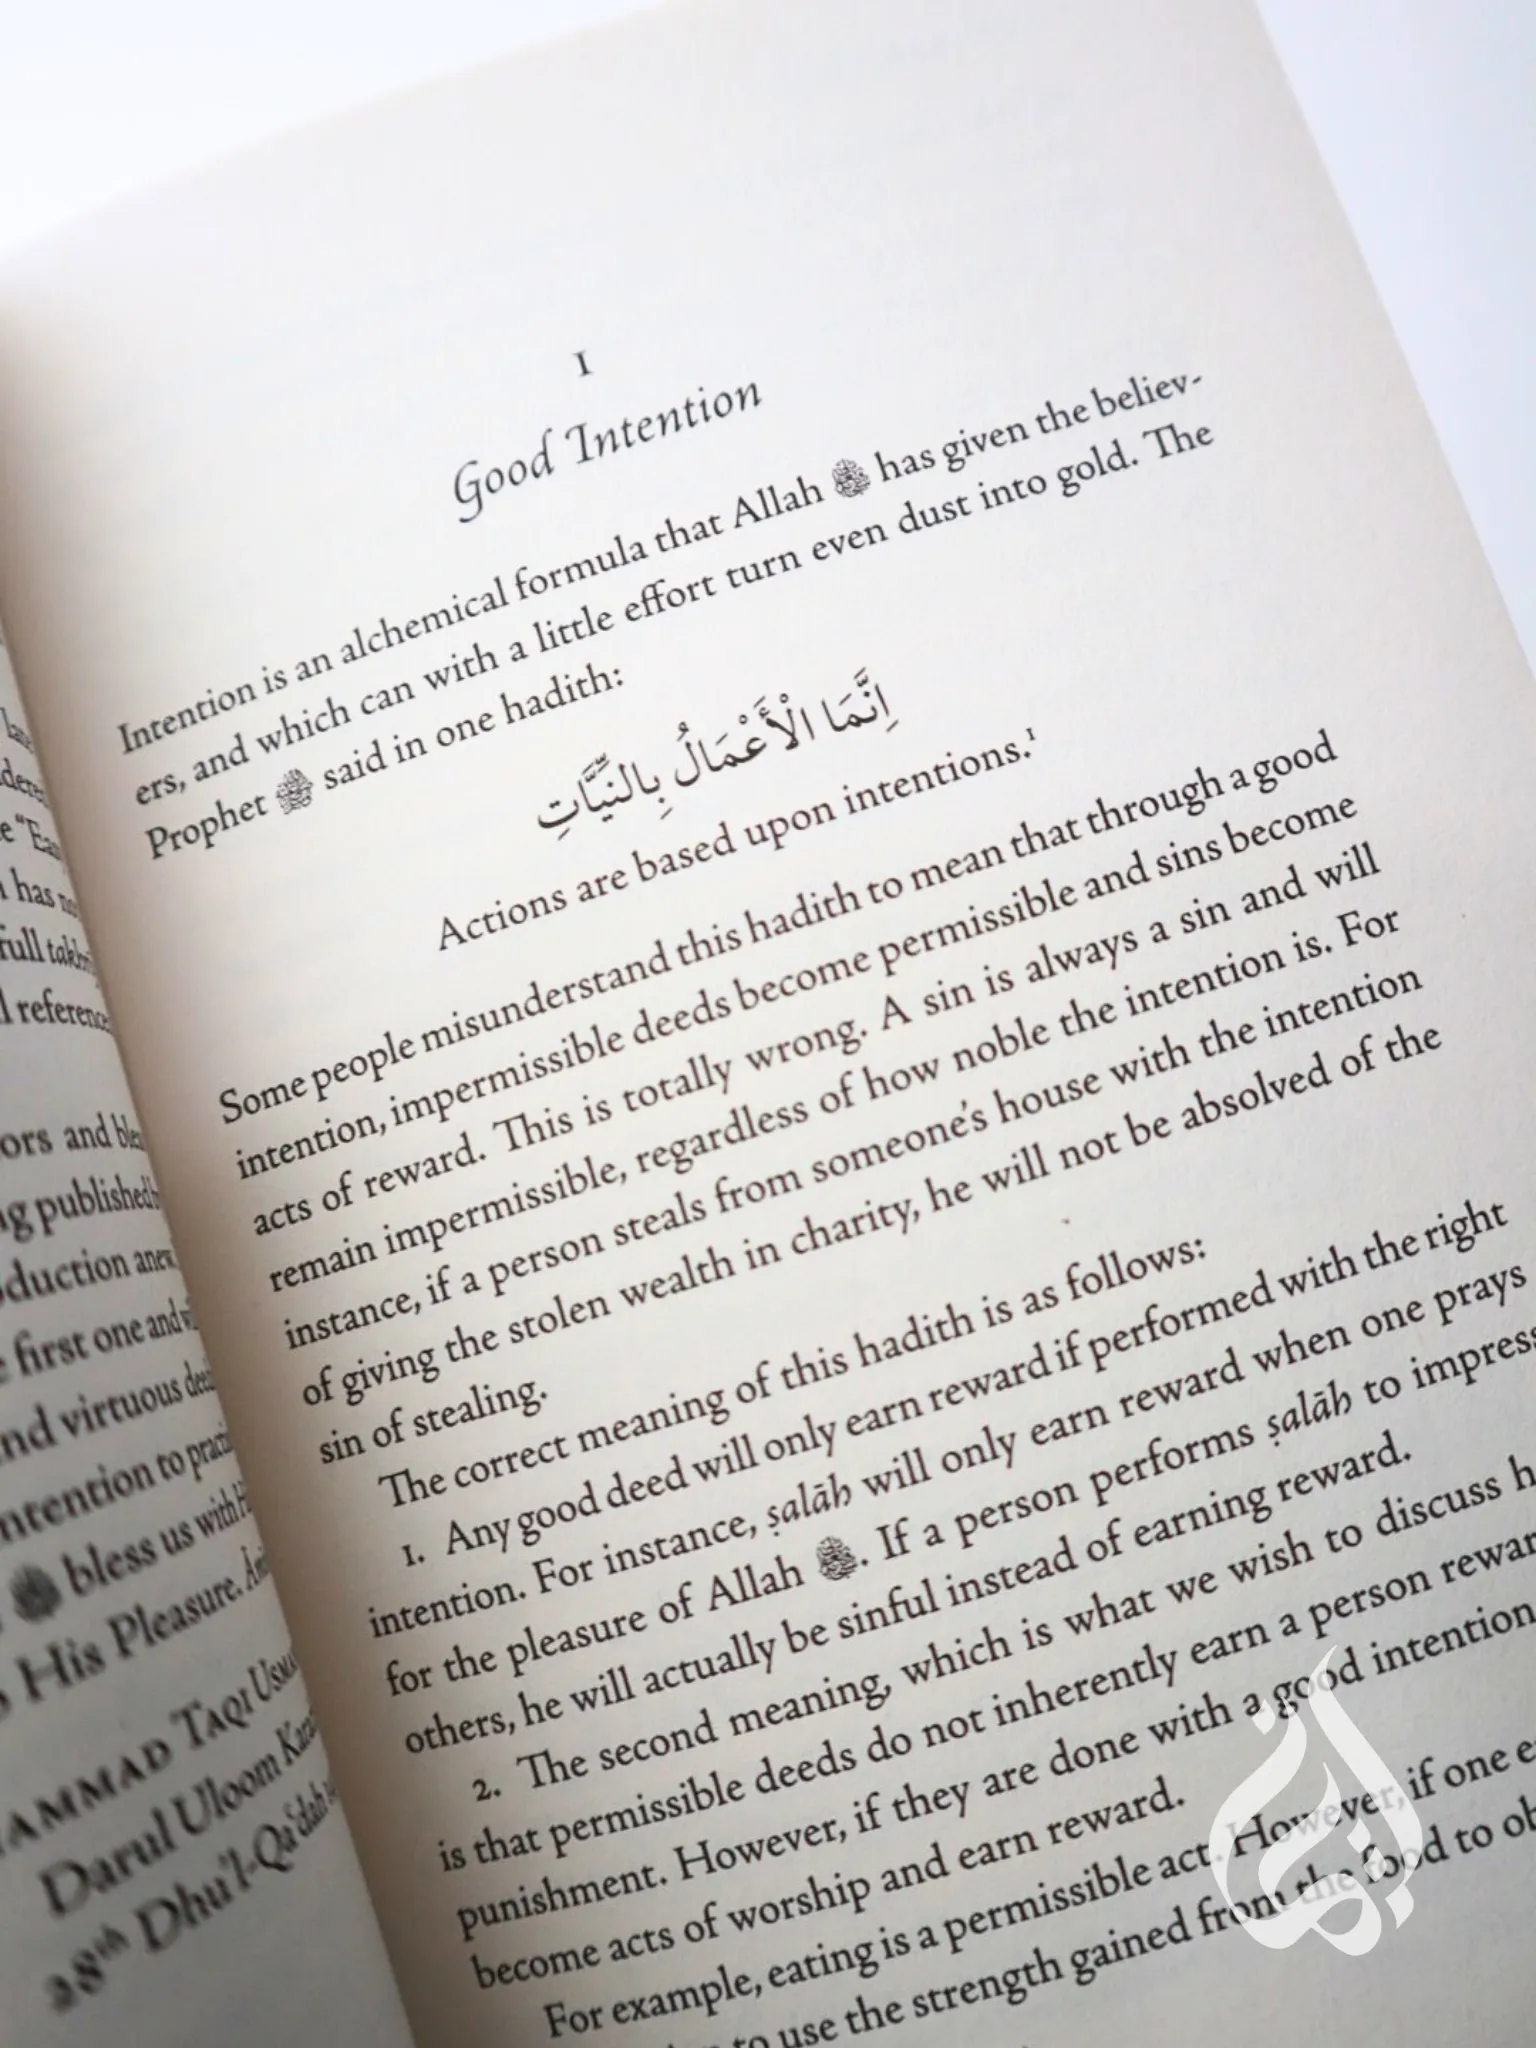 lane
has no
full
reference
ors and
published
oduction anew
first one and
and virtuous
intention to
ﷻ bless us with
His Pleasure.
TAQI
Darul Uloom
28th Dhu'l-Qa'dah
1
Good Intention
Intention is an alchemical formula that Allah ﷻ has given the believ-
ers, and which can with a little effort turn even dust into gold. The
Prophet ﷺ said in one hadith:
اِنَّمَا الْأَعْمَالُ بِالنِّيَّاتِ
Actions are based upon intentions.1
Some people misunderstand this hadith to mean that through a good
intention, impermissible deeds become permissible and sins become
acts of reward. This is totally wrong. A sin is always a sin and will
remain impermissible, regardless of how noble the intention is. For
instance, if a person steals from someone's house with the intention
of giving the stolen wealth in charity, he will not be absolved of the
sin of stealing.
The correct meaning of this hadith is as follows:
1. Any good deed will only earn reward if performed with the right
intention. For instance, ṣalāh will only earn reward when one prays
for the pleasure of Allah ﷻ. If a person performs ṣalāh to impress
others, he will actually be sinful instead of earning reward.
2. The second meaning, which is what we wish to discuss
is that permissible deeds do not inherently earn a person
punishment. However, if they are done with a good intention
become acts of worship and earn reward.
For example, eating is a permissible act. However, if one
to use the strength gained from the food to